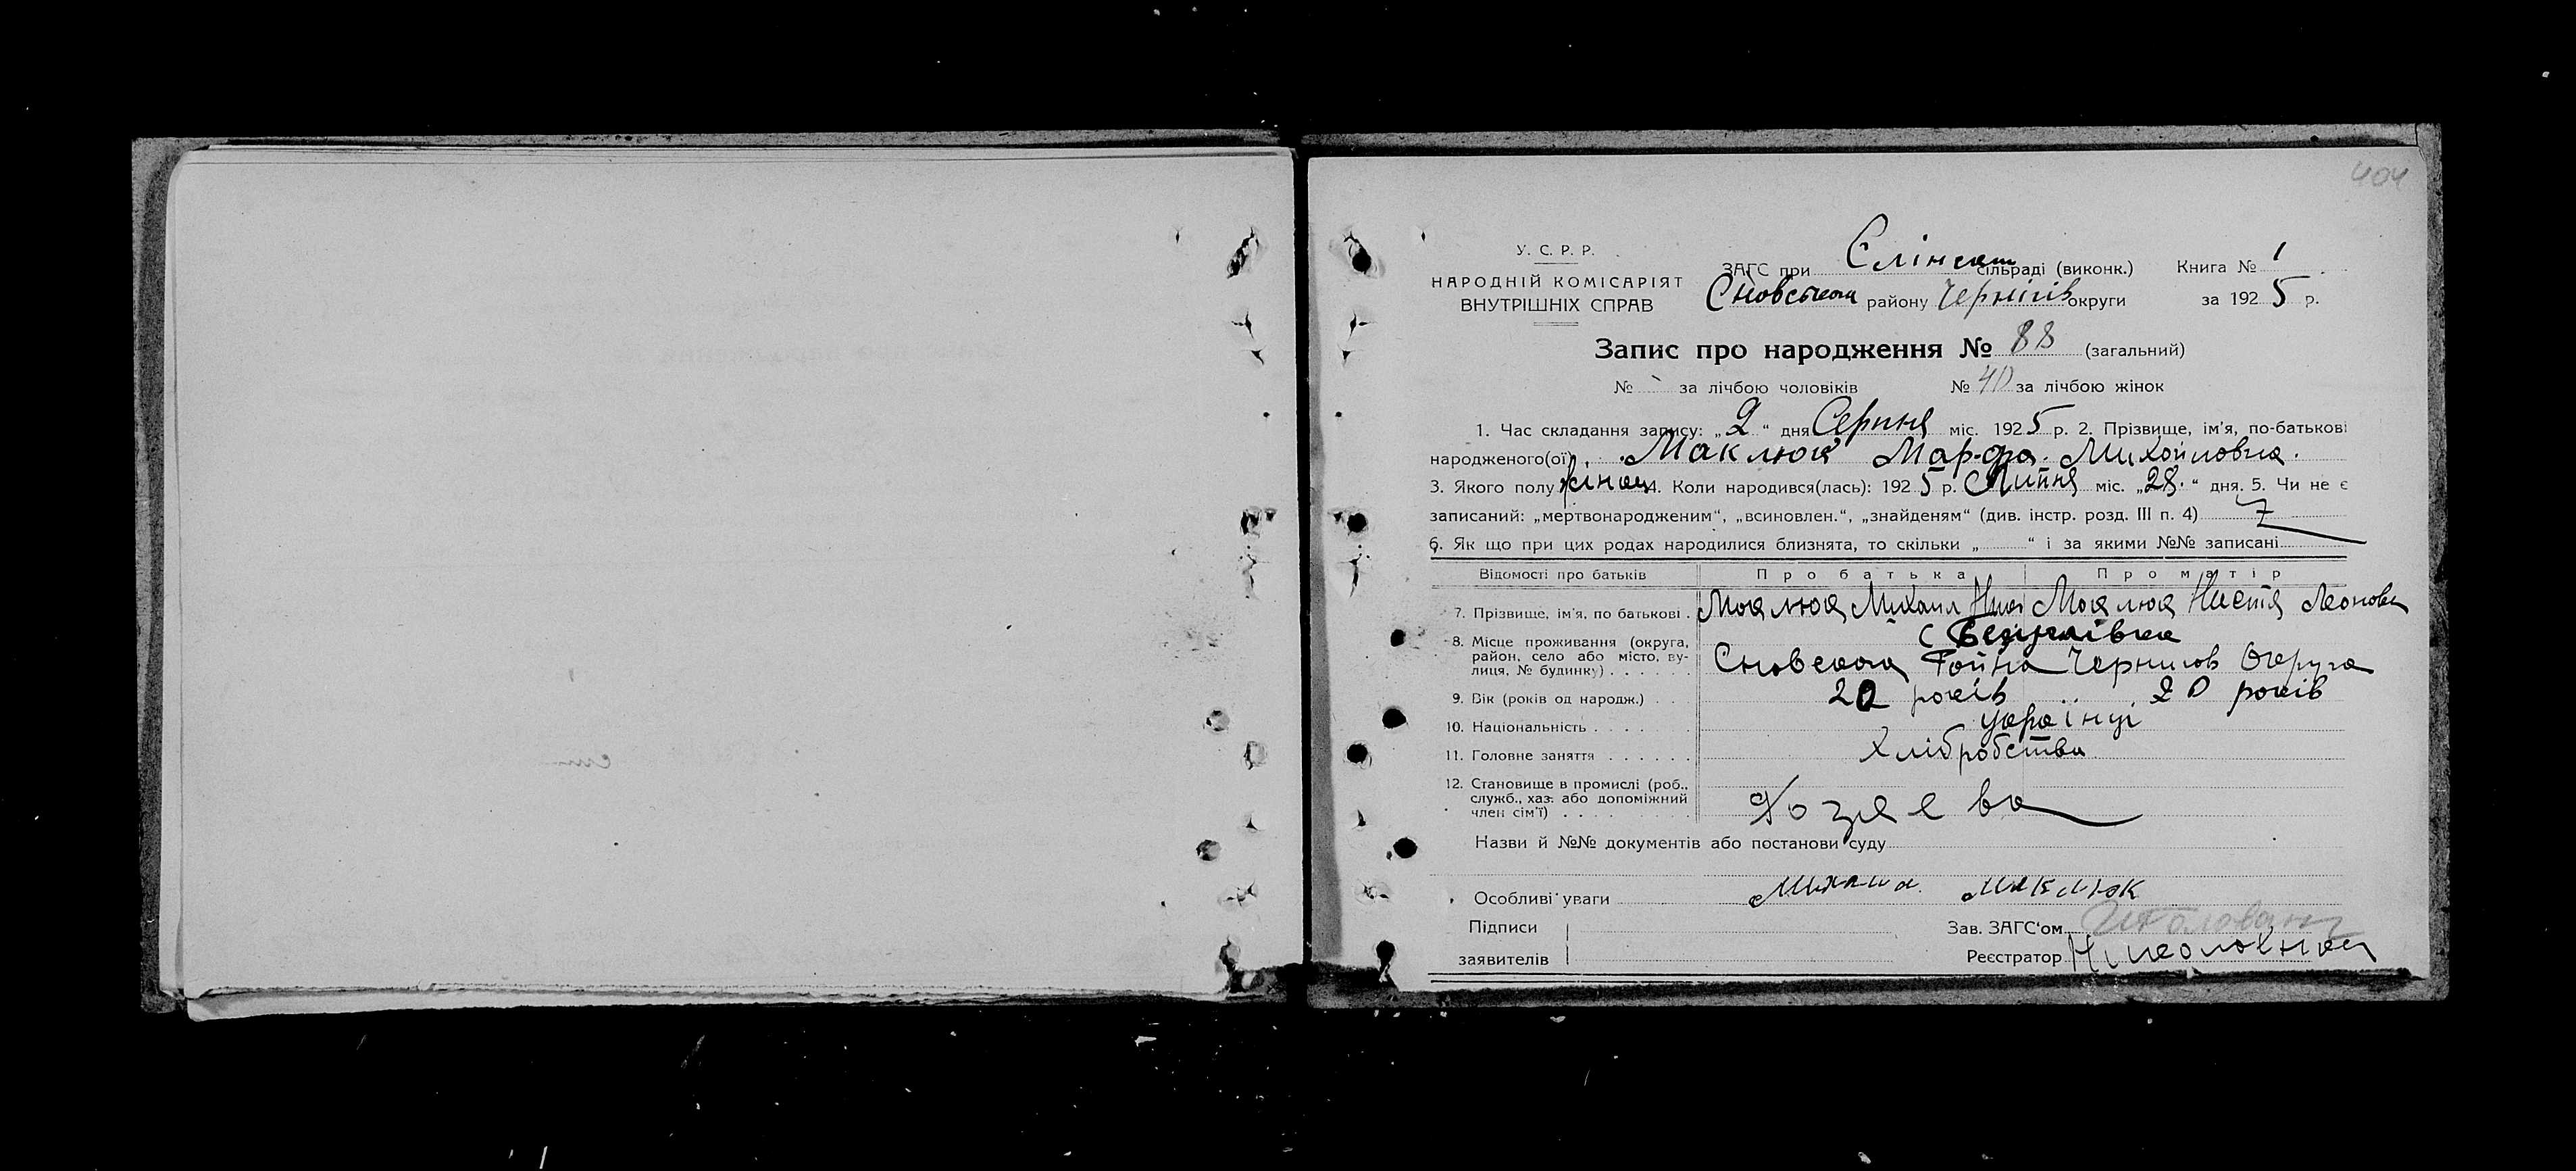 404
У. С. Р. Р.
НАРОДНІЙ КОМІСАРІЯТ
ВНУТРІШНІХ СПРАВ
ЗАГС при Єлінськ сільраді (виконк.) Книга № 1
Сновськом району Чернігів округи за 1925 р.
Запис про народження № 88 (загальний)
№ за лічбою чоловіків № 40 за лічбою жінок
1. Час складання запису: „2“ дня Серпня міс. 1925 р. 2. Прізвище, ім'я, по-батькові
народженого(ої) Маклюк Марфа Михойловна.
3. Якого полу жіноц 4. Коли народився(лась): 1925 р. Липня міс. „28.“ дня. 5. Чи не є
записаний: „мертвонародженим“, „всиновлен.“, „знайденям“ (див. інстр. розд. III п. 4)
6. Як що при цих родах народилися близнята, то скільки „ “ і за якими №№ записані
Відомості про батьків Про батька Про матір
7. Прізвище, ім'я, по батькові . Маклюк Михаил Маклюк Настя Леоновн
8. Місце проживання (округа,
район, село або місто, ву-
лиця, № будинку) . . . . . .
Сновского Район Чернигов Округа
9. Вік (років од народж.) . . 20 років 20 років
10. Національність . . . . . . Українці
11. Головне заняття . . . . . . Хлібробства
12. Становище в промислі (роб.,
служб., хаз. або допоміжний
член сім'ї) . . . . . . . . Хозяева
Назви й №№ документів або постанови суду
Особливі уваги Михаил Маклюк
Підписи Зав. ЗАГС'ом
заявителів Реєстратор